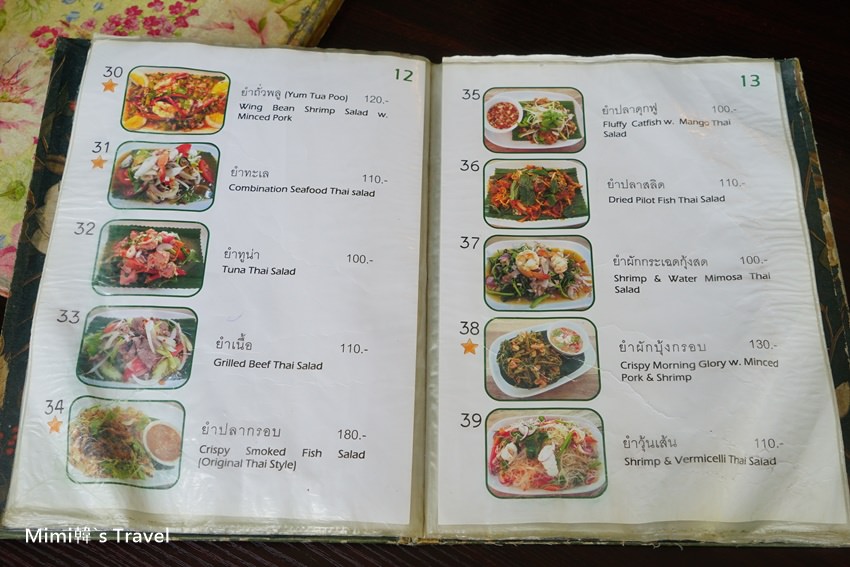 12
30
ยำถั่วพลู (Yum Tua Poo) 120.-
Wing Bean Shrimp Salad w.
Minced Pork
31
ยำทะเล 110.-
Combination Seafood Thai salad
32
ยำทูน่า 100.-
Tuna Thai Salad
33
ยำเนื้อ 110.-
Grilled Beef Thai Salad
34
ยำปลากรอบ 180.-
Crispy Smoked Fish Salad
(Original Thai Style)
13
35
ยำปลาดุกฟู 100.-
Fluffy Catfish w. Mango Thai
Salad
36
ยำปลาสลิด 110.-
Dried Pilot Fish Thai Salad
37
ยำผักกระเฉดกุ้งสด 100.-
Shrimp & Water Mimosa Thai
Salad
38
ยำผักบุ้งกรอบ 130.-
Crispy Morning Glory w. Minced
Pork & Shrimp
39
ยำวุ้นเส้น 110.-
Shrimp & Vermicelli Thai Salad
Mimi韓`s Travel